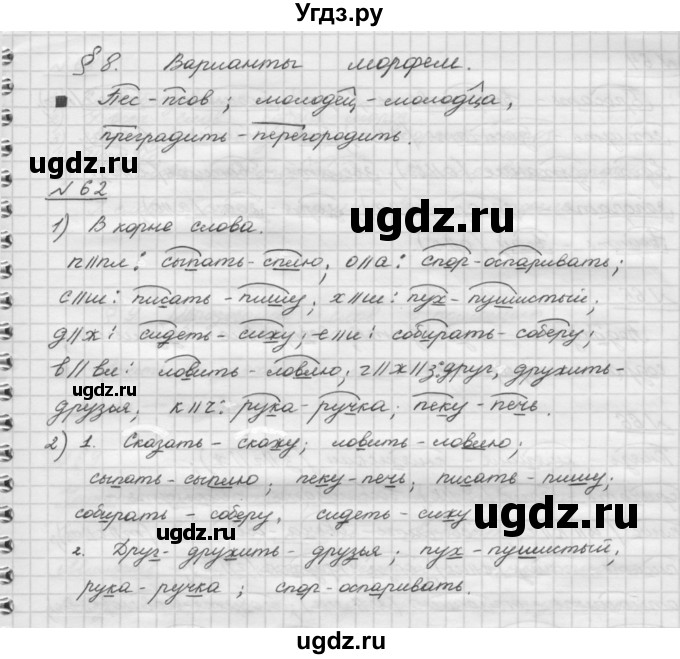 Угдз.ру
§ 8. Варианты морфем.
Пес - псов; молодец - молодца,
преградить - перегородить.
ugdz.ru
ugdz.ru
№ 62
1) В корне слова.
п//пл: сыпать - сплю; о//а: спор - оспаривать;
ugdz.ru
с//ш: писать - пишу, х//ш: пух - пушистый;
д//ж: сидеть - сижу; е//и: собирать - соберу;
в//вл: ловить - ловлю; г//ж//з: друг, дружить -
ugdz.ru
друзья; к//ч: рука - ручка; пеку - печь.
2) 1. Сказать - скажу; ловить - ловлю;
сыпать - сыплю; пеку - печь, писать - пишу;
собирать - соберу, сидеть - сижу
ugdz.ru
ugdz.ru
2. Друг - дружить - друзья; пух - пушистый;
рука - ручка; спор - оспаривать.
ugdz.ru
ugdz.ru